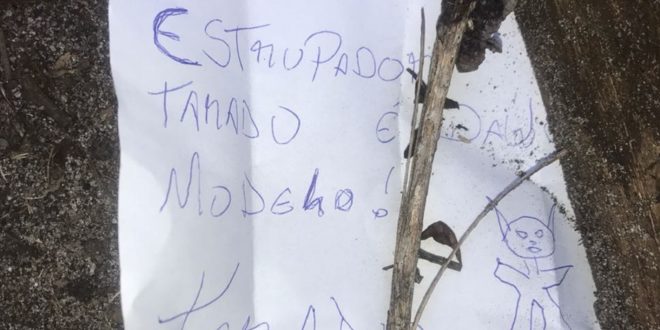 ESTRUPADOR
TARADO É
MODELO!